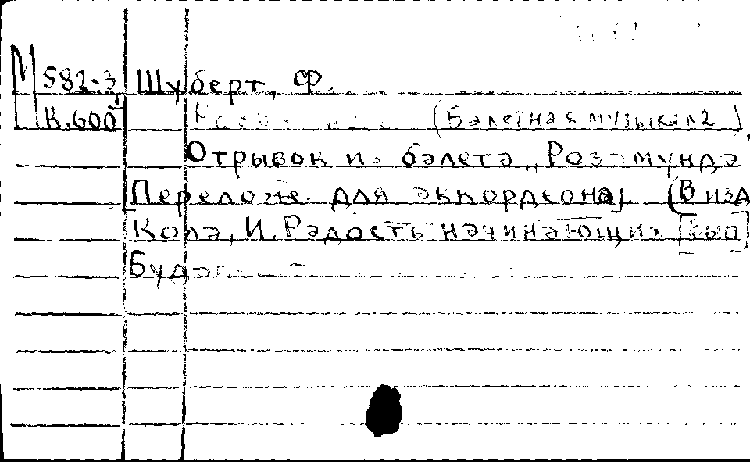 М 582-3 Шуберт, Ф.
К.600 (Балетная музыка 2)
Отрывок из балета "Розамунда
[Переложе. для аккордеона] (В изд
Кола, И. Радость начинающих [вып]